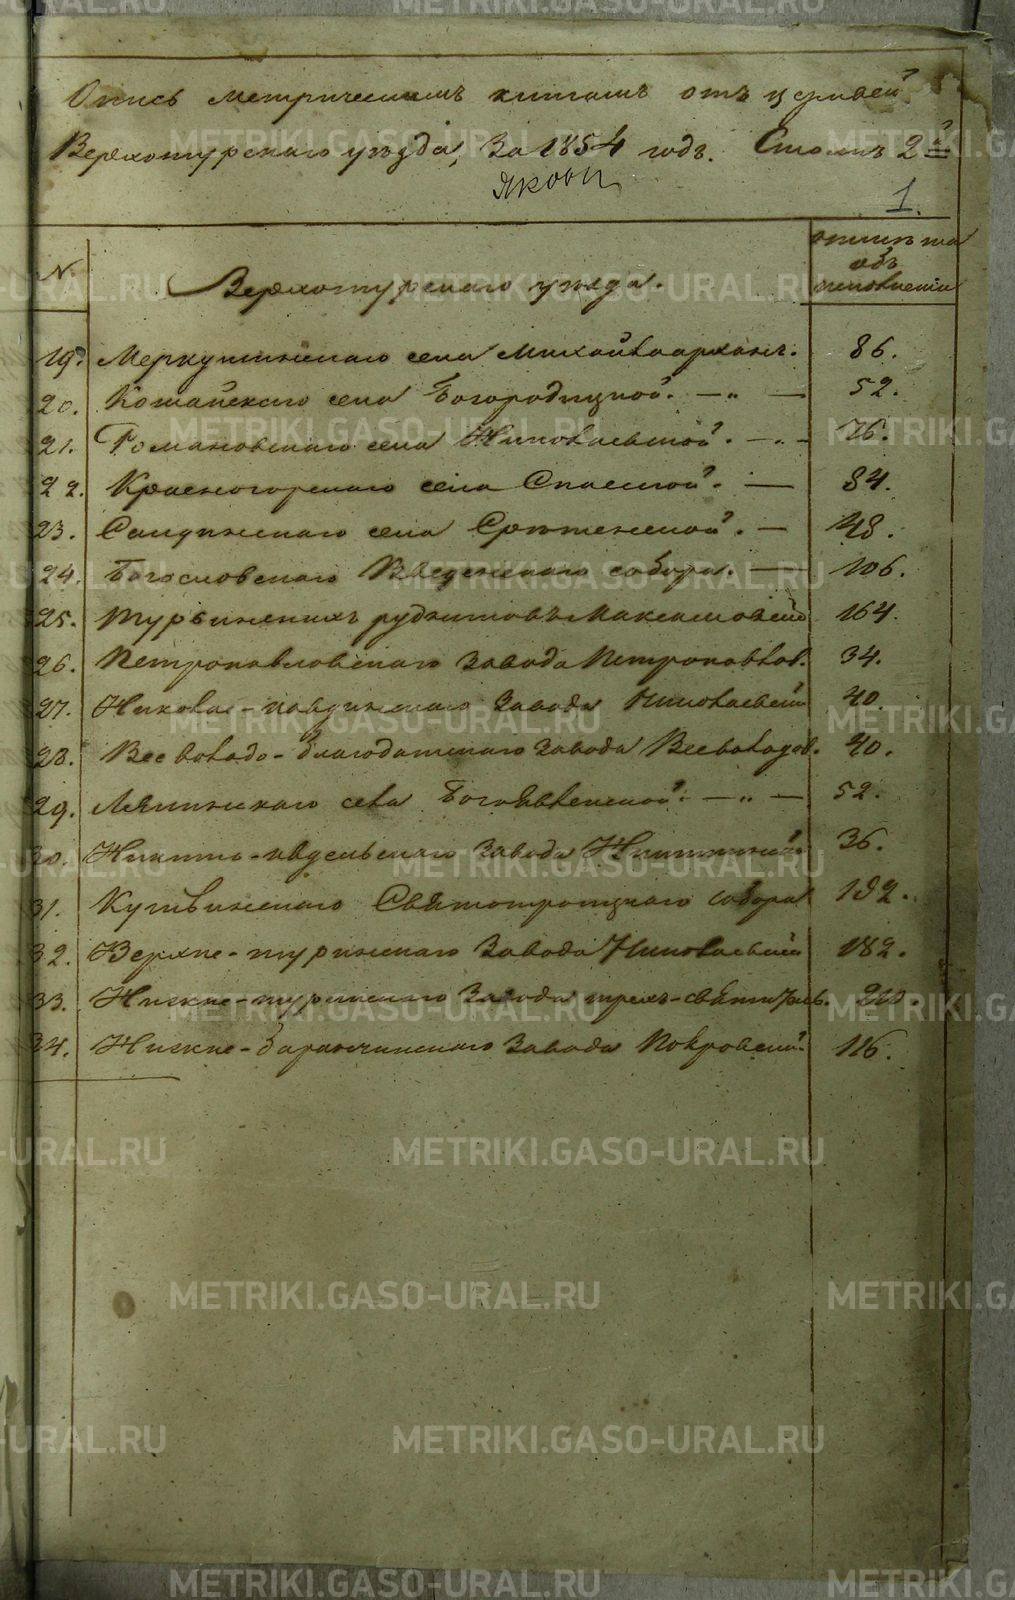 Опись метрическимъ книгамъ отъ церквей
Верхотурскаго уѣзда, За 1854 годъ. Столъ 2й
1.
N.
Верхотурскаго уѣзда.
объ
исповнении
19. Меркушинскаго села Михайлоарханг. 86.
20. Кошайскаго села Богородицкой. — „ — 52.
21. Романовскаго села Николаевской. — „ — 76.
22. Красногорскаго села Спасской. — 84.
23. Салдинскаго села Срѣтенской. — 48.
24. Богословскаго Введенскаго собора. — 106.
25. Турьинскихъ рудниковъ Максимовской 164.
26. Петропавловскаго Завода Петропавлов. 34.
27. Николае-павдинскаго Завода Николаевской 40.
28. Всеволодо-благодатскаго завода Всеволодов. 40.
29. Лялинскаго села Богоявленской. — „ — 52.
30. Никито-ивдельскаго Завода 36.
31. Кушвинскаго Святотроицкаго собора 192.
32. Верхне-туринскаго Завода Николаевской 182.
33. Нижне-туринскаго Завода трехъ-святитель.
34. Нижне-баранчинскаго Завода Покровской. 116.
METRIKI.GASO-URAL.RU